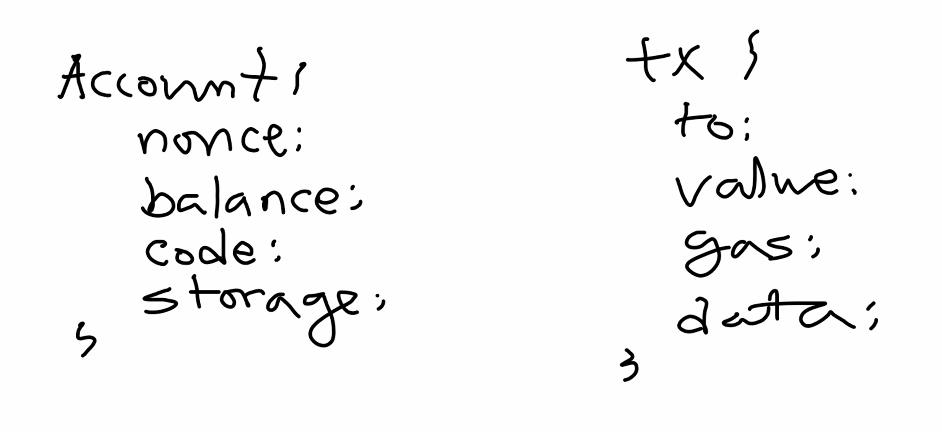 Account {
nonce:
balance:
code:
storage:
}
tx {
to:
value:
gas:
data:
}